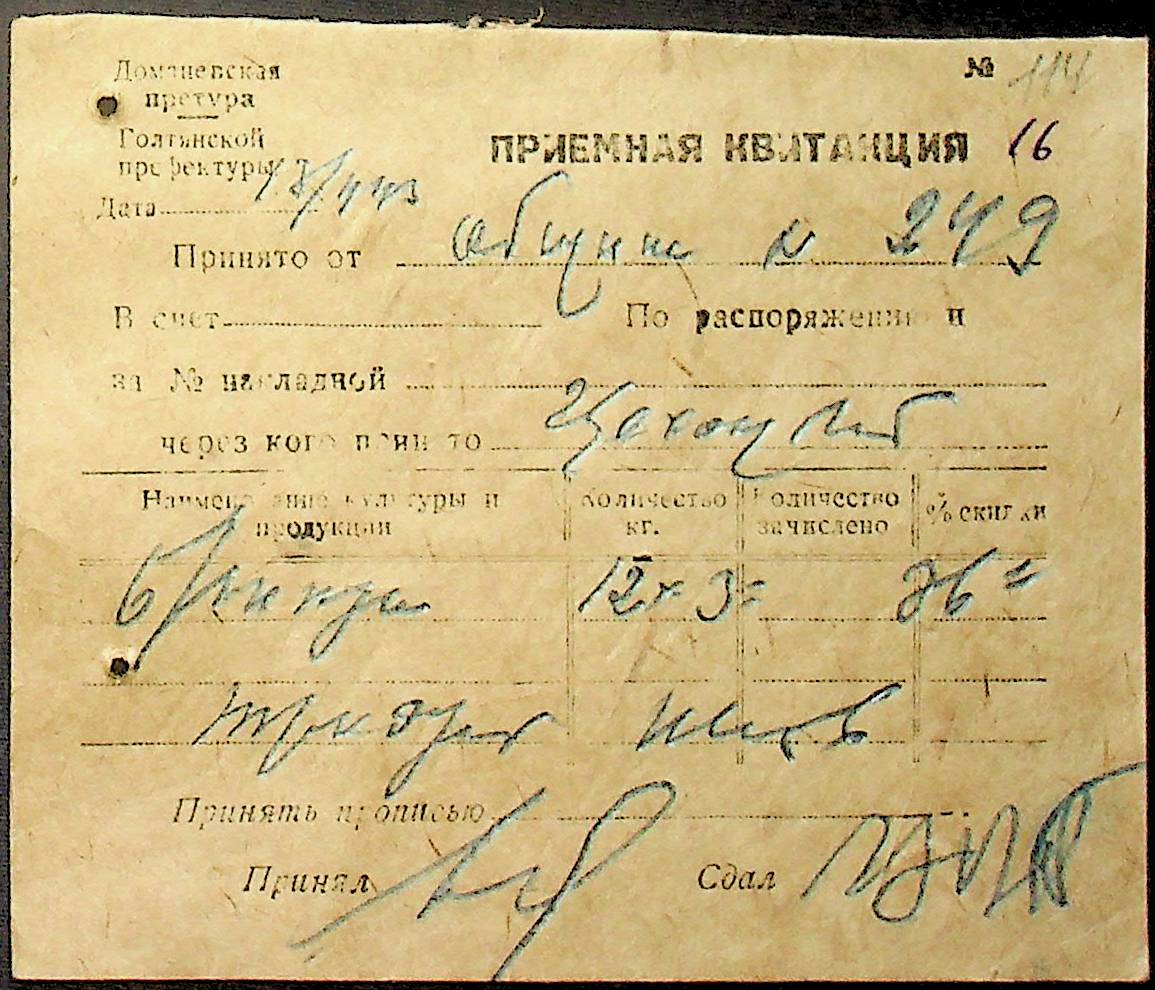 Доманевская
претура
№ 114
Голтянской
префектуры
ПРИЕМНАЯ КВИТАНЦИЯ 16
Дата
Принято от общины № 249
В счет По распоряжению и
за № накладной
через кого принято
Наименование культуры и продукции Количество кг. Количество зачислено % скидки
Брынзы 12 × 3 = 36 =
тридцать шесть
Принять прописью
Принял Сдал